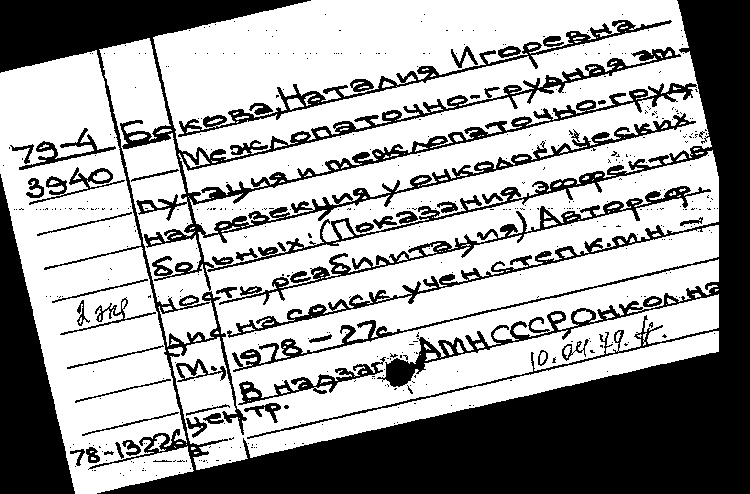 Бокова, Наталия Игоревна.
79-4
3940
Межлопаточно-грудная ам-
путация и межлопаточно-груд
ная резекция у онкологических
больных: (Показания, эффектив-
ность, реабилитация). Автореф.
2 экз
дис. на соиск. учен. степ. к.м.н. –
М., 1978. – 27с.
В надзаг. АМН СССР, Онкол. на
центр.
10.04.79
78-13226